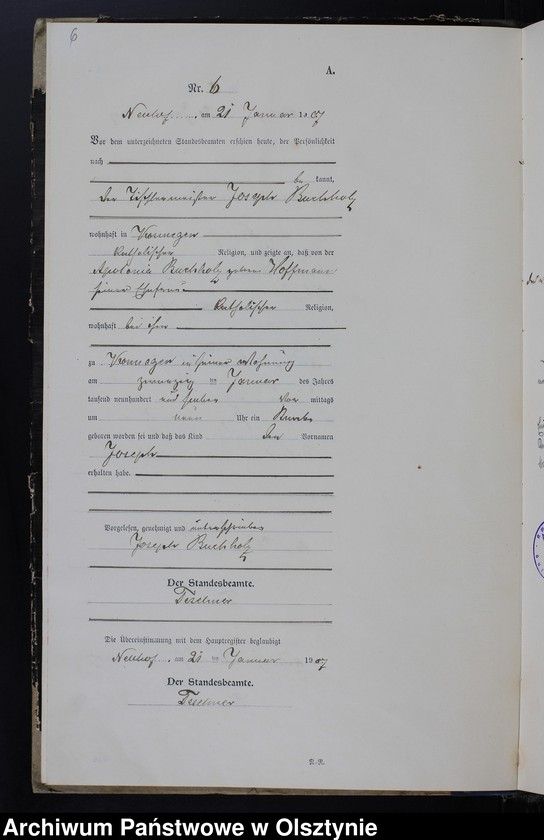 6
A.
Nr. 6
Neuhof, am 21 Januar 1907
Vor dem unterzeichneten Standesbeamten erschien heute, der Persönlichkeit
nach
be kannt,
der Tischlermeister Joseph Buchholz
wohnhaft in
katholischer Religion, und zeigte an, daß von der
Apolonia Buchholz geborene Hoffmann
seiner Ehefrau
katholischer Religion,
wohnhaft bei ihm
zu in seiner Wohnung
am zwanzig ten Januar des Jahres
tausend neunhundert und sieben Vor mittags
um neun Uhr ein Knabe
geboren worden sei und daß das Kind den Vornamen
Joseph
erhalten habe.
Vorgelesen, genehmigt und unterschrieben
Joseph Buchholz
Der Standesbeamte.
Teschner
Die Übereinstimmung mit dem Hauptregister beglaubigt
Neuhof, am 21 ten Januar 1907
Der Standesbeamte.
Teschner
Archiwum Państwowe w Olsztynie